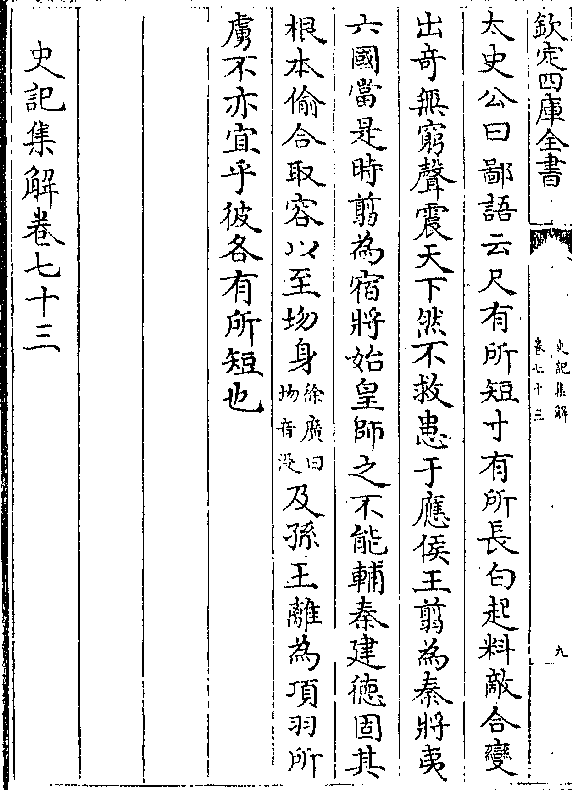 欽定四庫全書
史記集解
卷七十三
九
太史公曰鄙語云尺有所短寸有所長白起料敵合變
出奇無窮聲震天下然不救患于應侯王翦為秦將夷
六國當是時翦為宿將始皇師之不能輔秦建德固其
根本偷合取容以至㘬身徐廣曰㘬音沒及孫王離為項羽所
虜不亦宜乎彼各有所短也
史記集解卷七十三